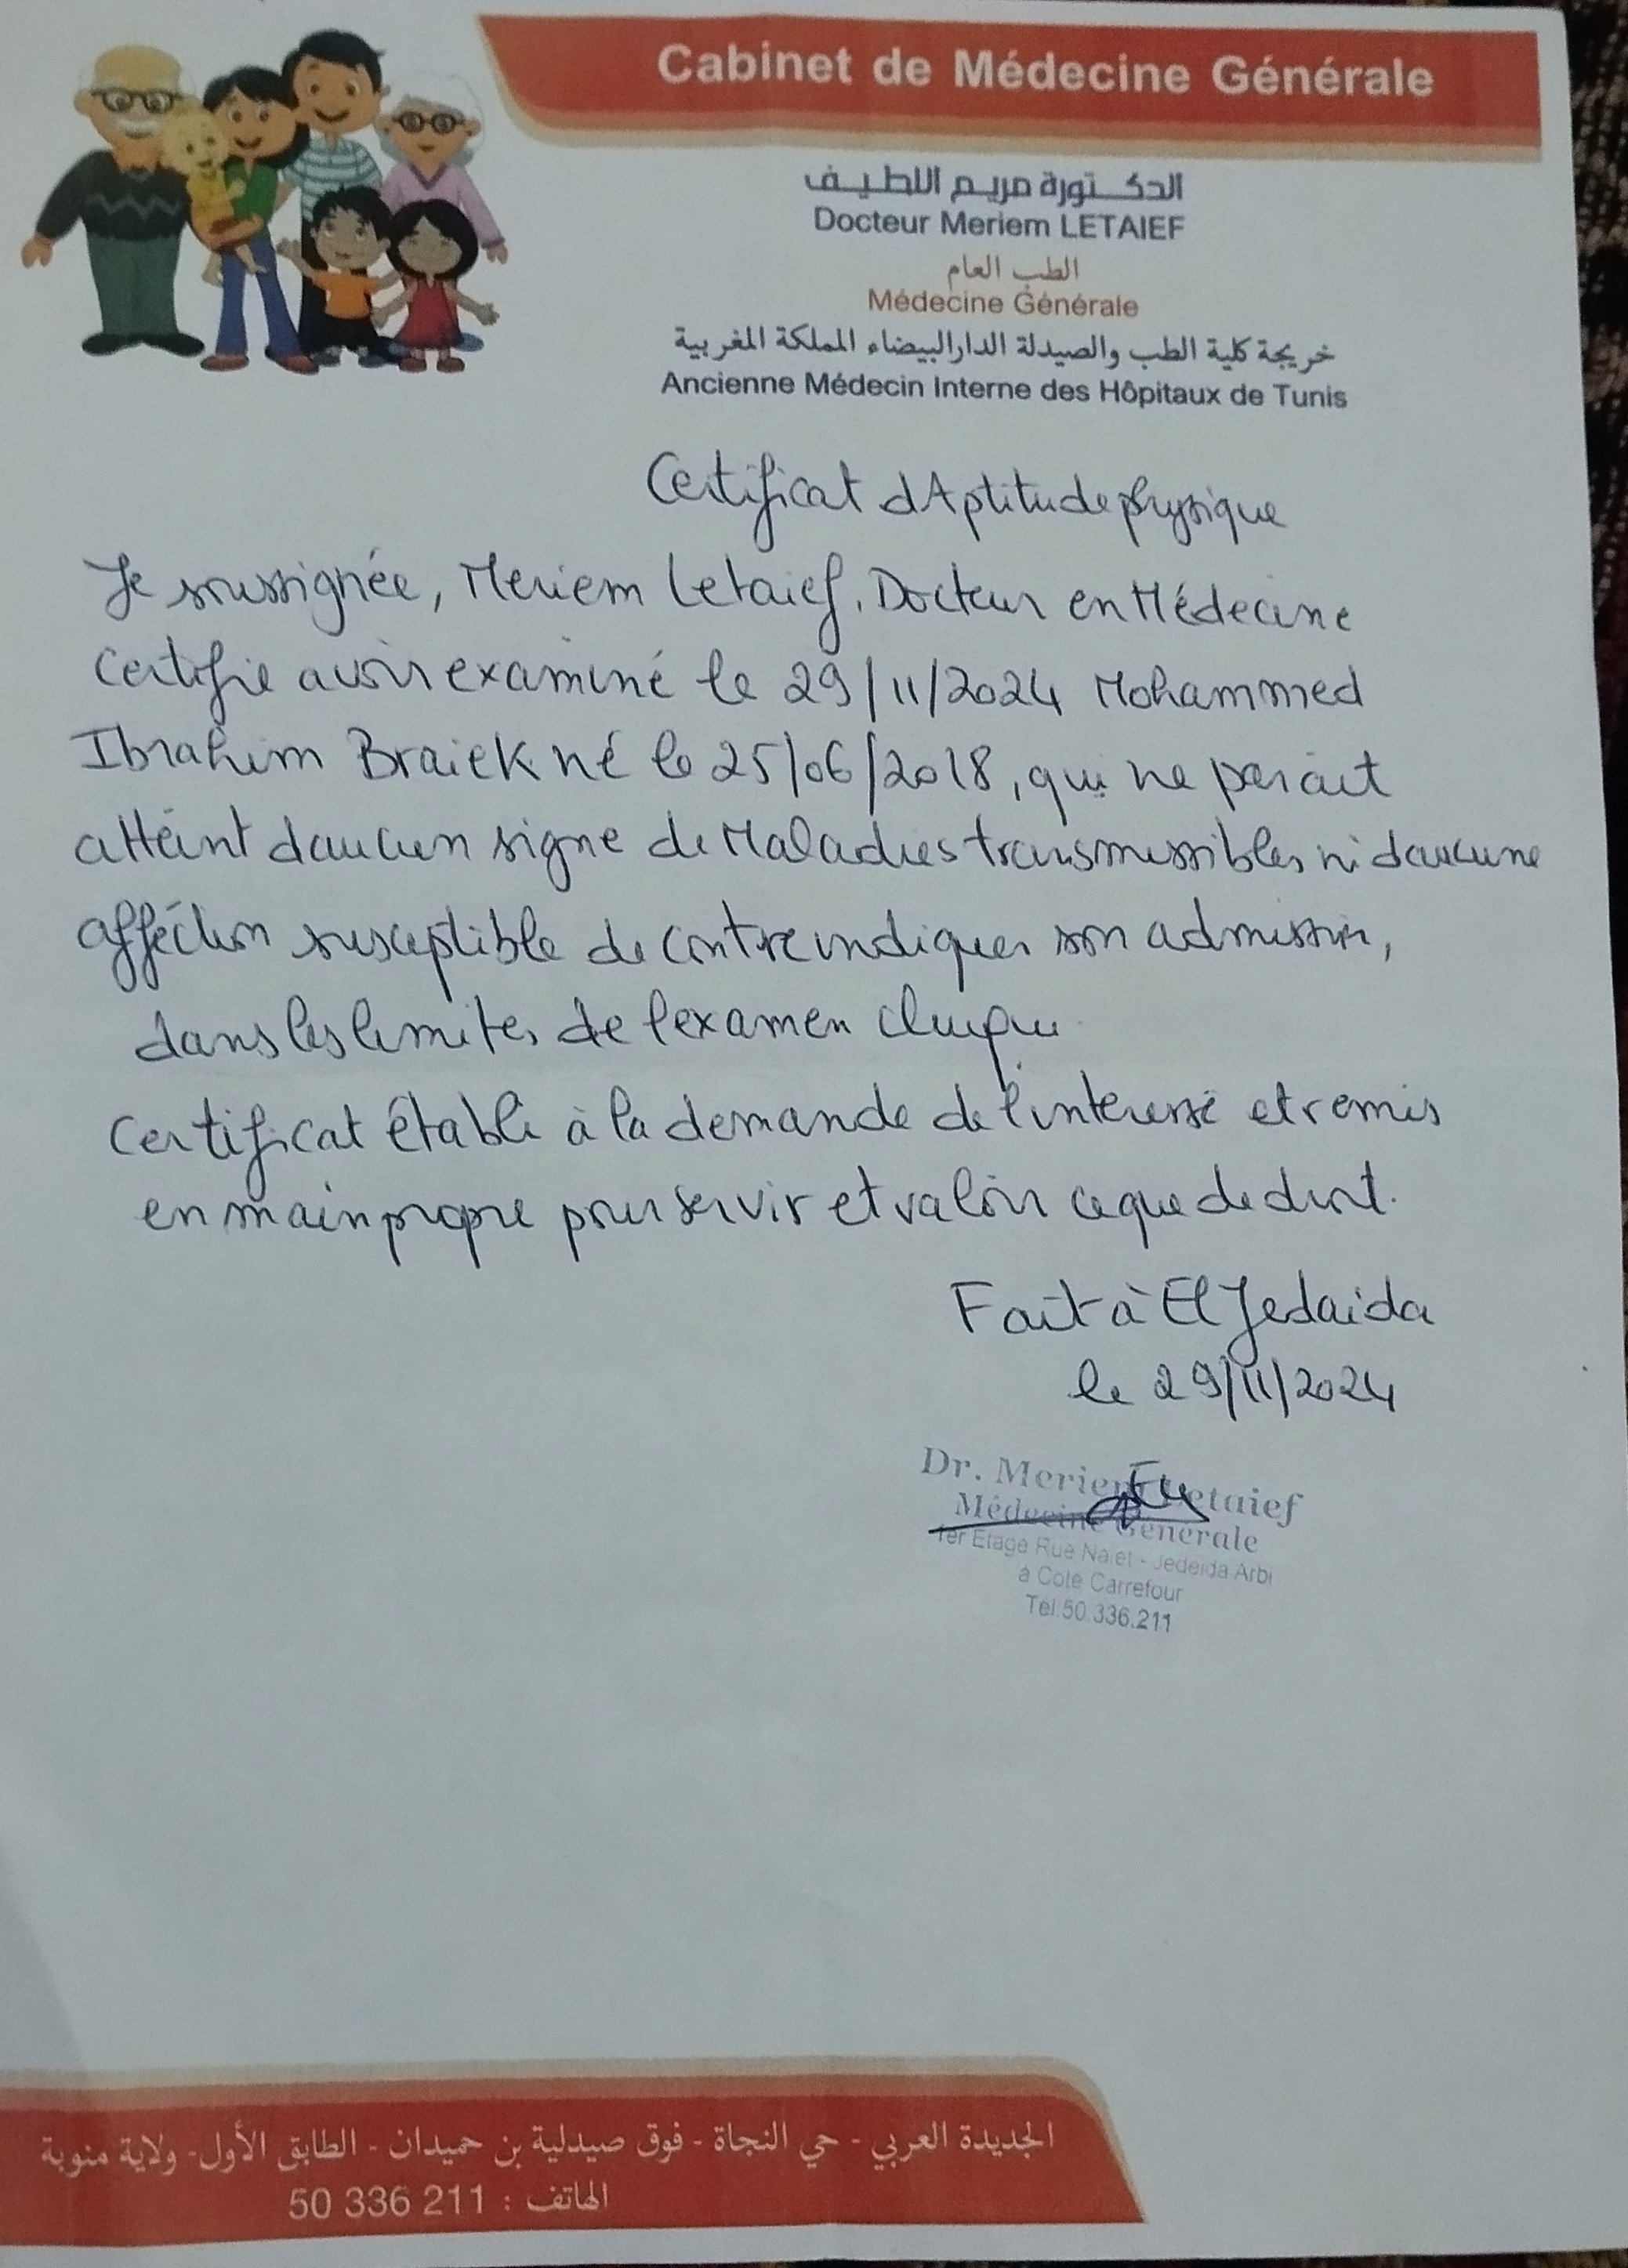 Cabinet de Médecine Générale
الدكتورة مريم اللطيف
Docteur Meriem LETAIEF
الطب العام
Médecine Générale
خريجة كلية الطب والصيدلة الدار البيضاء المملكة المغربية
Ancienne Médecin Interne des Hôpitaux de Tunis
Certificat d'Aptitude physique
Je soussignée, Meriem Letaief, Docteur en Médecine
Certifie avoir examiné le 29/11/2024 Mohammed
Ibrahim Braiek né le 25/06/2018, qui ne parait
atteint d'aucun signe de Maladies transmissibles ni d'aucune
affection susceptible de contre indiquer son admission,
dans les limites de l'examen clinique.
Certificat établi à la demande de l'interessé et remis
en main propre pour servir et valoir ce que de droit.
Fait à El Jedaida
le 29/11/2024
Dr. Meriem Letaief
Médecine Générale
1er Etage Rue Najet - Jedeida Arbi
à Coté Carrefour
Tél.50.336.211
الجديدة العربي - حي النجاة - فوق صيدلية بن حميدان - الطابق الأول- ولاية منوبة
الهاتف : 211 336 50